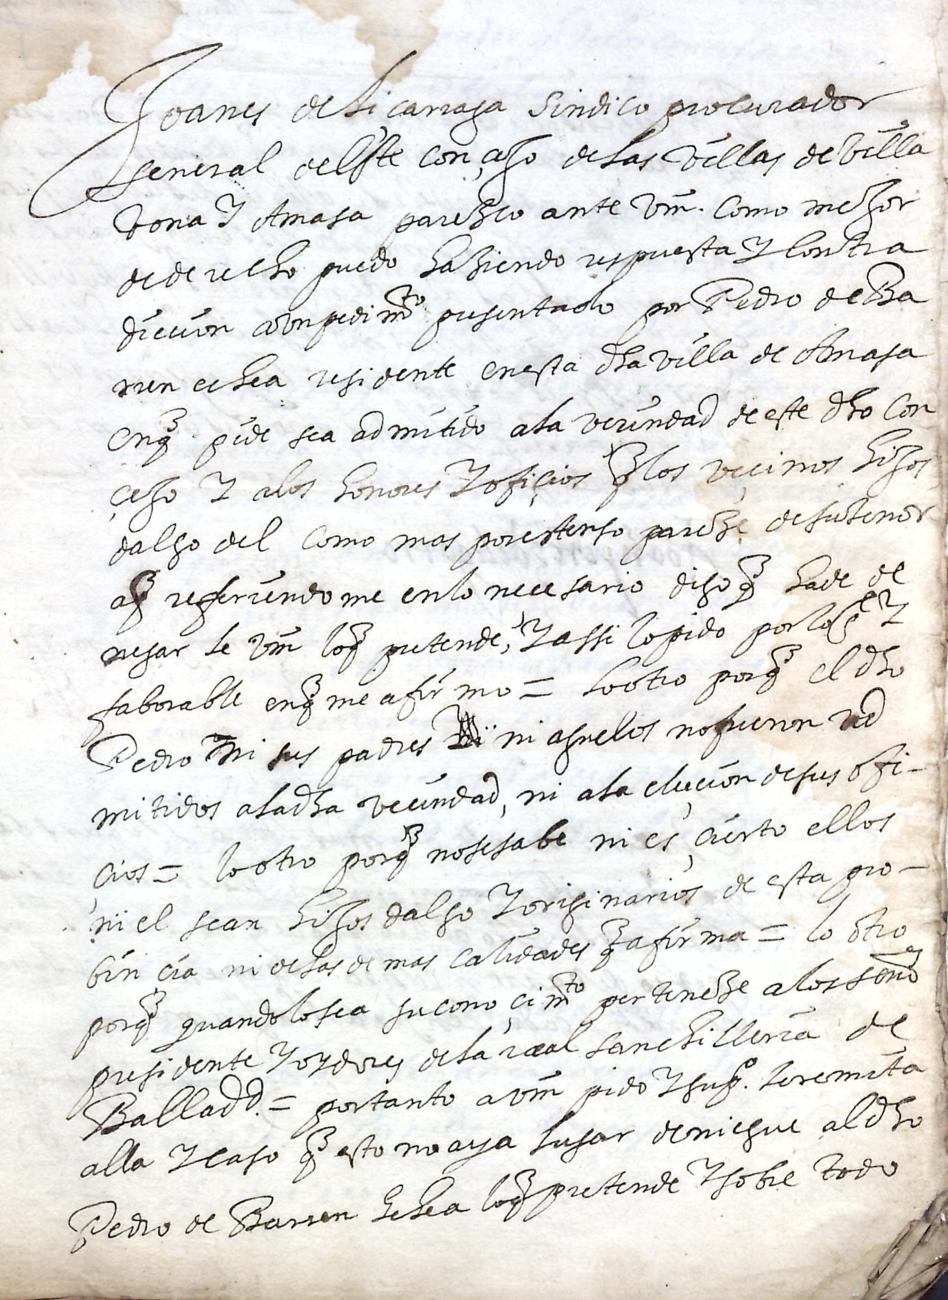 Joanes de Liçarraga sindico procurador
General deste conçejo de las villas de villa
bona Y Amasa paresco ante Vm. como mejor
de derecho puedo haziendo respuesta Y contra
dicion a un pedimto presentado por Pedro de Ba
rren echea residente en esta dha villa de Amasa
enq pide sea admitido ala vecindad de este dho con
çejo Y alos honores Y ofiçios q los vecinos hijos
dalgo del como mas por estenso pareze de su tenor
aq refiriendome en lo necesario digo q ha de de
negar le Vm loq pretende, Y assi lo pido por lo Y
faborable enq me afirmo = lo otro porq el dho
Pedro ni sus padres ni aguelos no fueron ad
mitidos ala dha vecindad, ni ala elecion de sus ofi-
çios = lo otro porq no se sabe ni es çierto ellos
ni el sean hijos dalgo Y originarios de esta pro-
bin cia ni de las demas calidades q afirma = lo otro
porq quando lo sea su cono çimto perteneze alos señores
presidente Y oydores de la real chanchilleria de
Balladd. = por tanto a Vm pido Y supco. le remita
alla Y caso q esto no aya lugar deniegue al dho
Pedro de Barren hechea loq pretende Y sobre todo